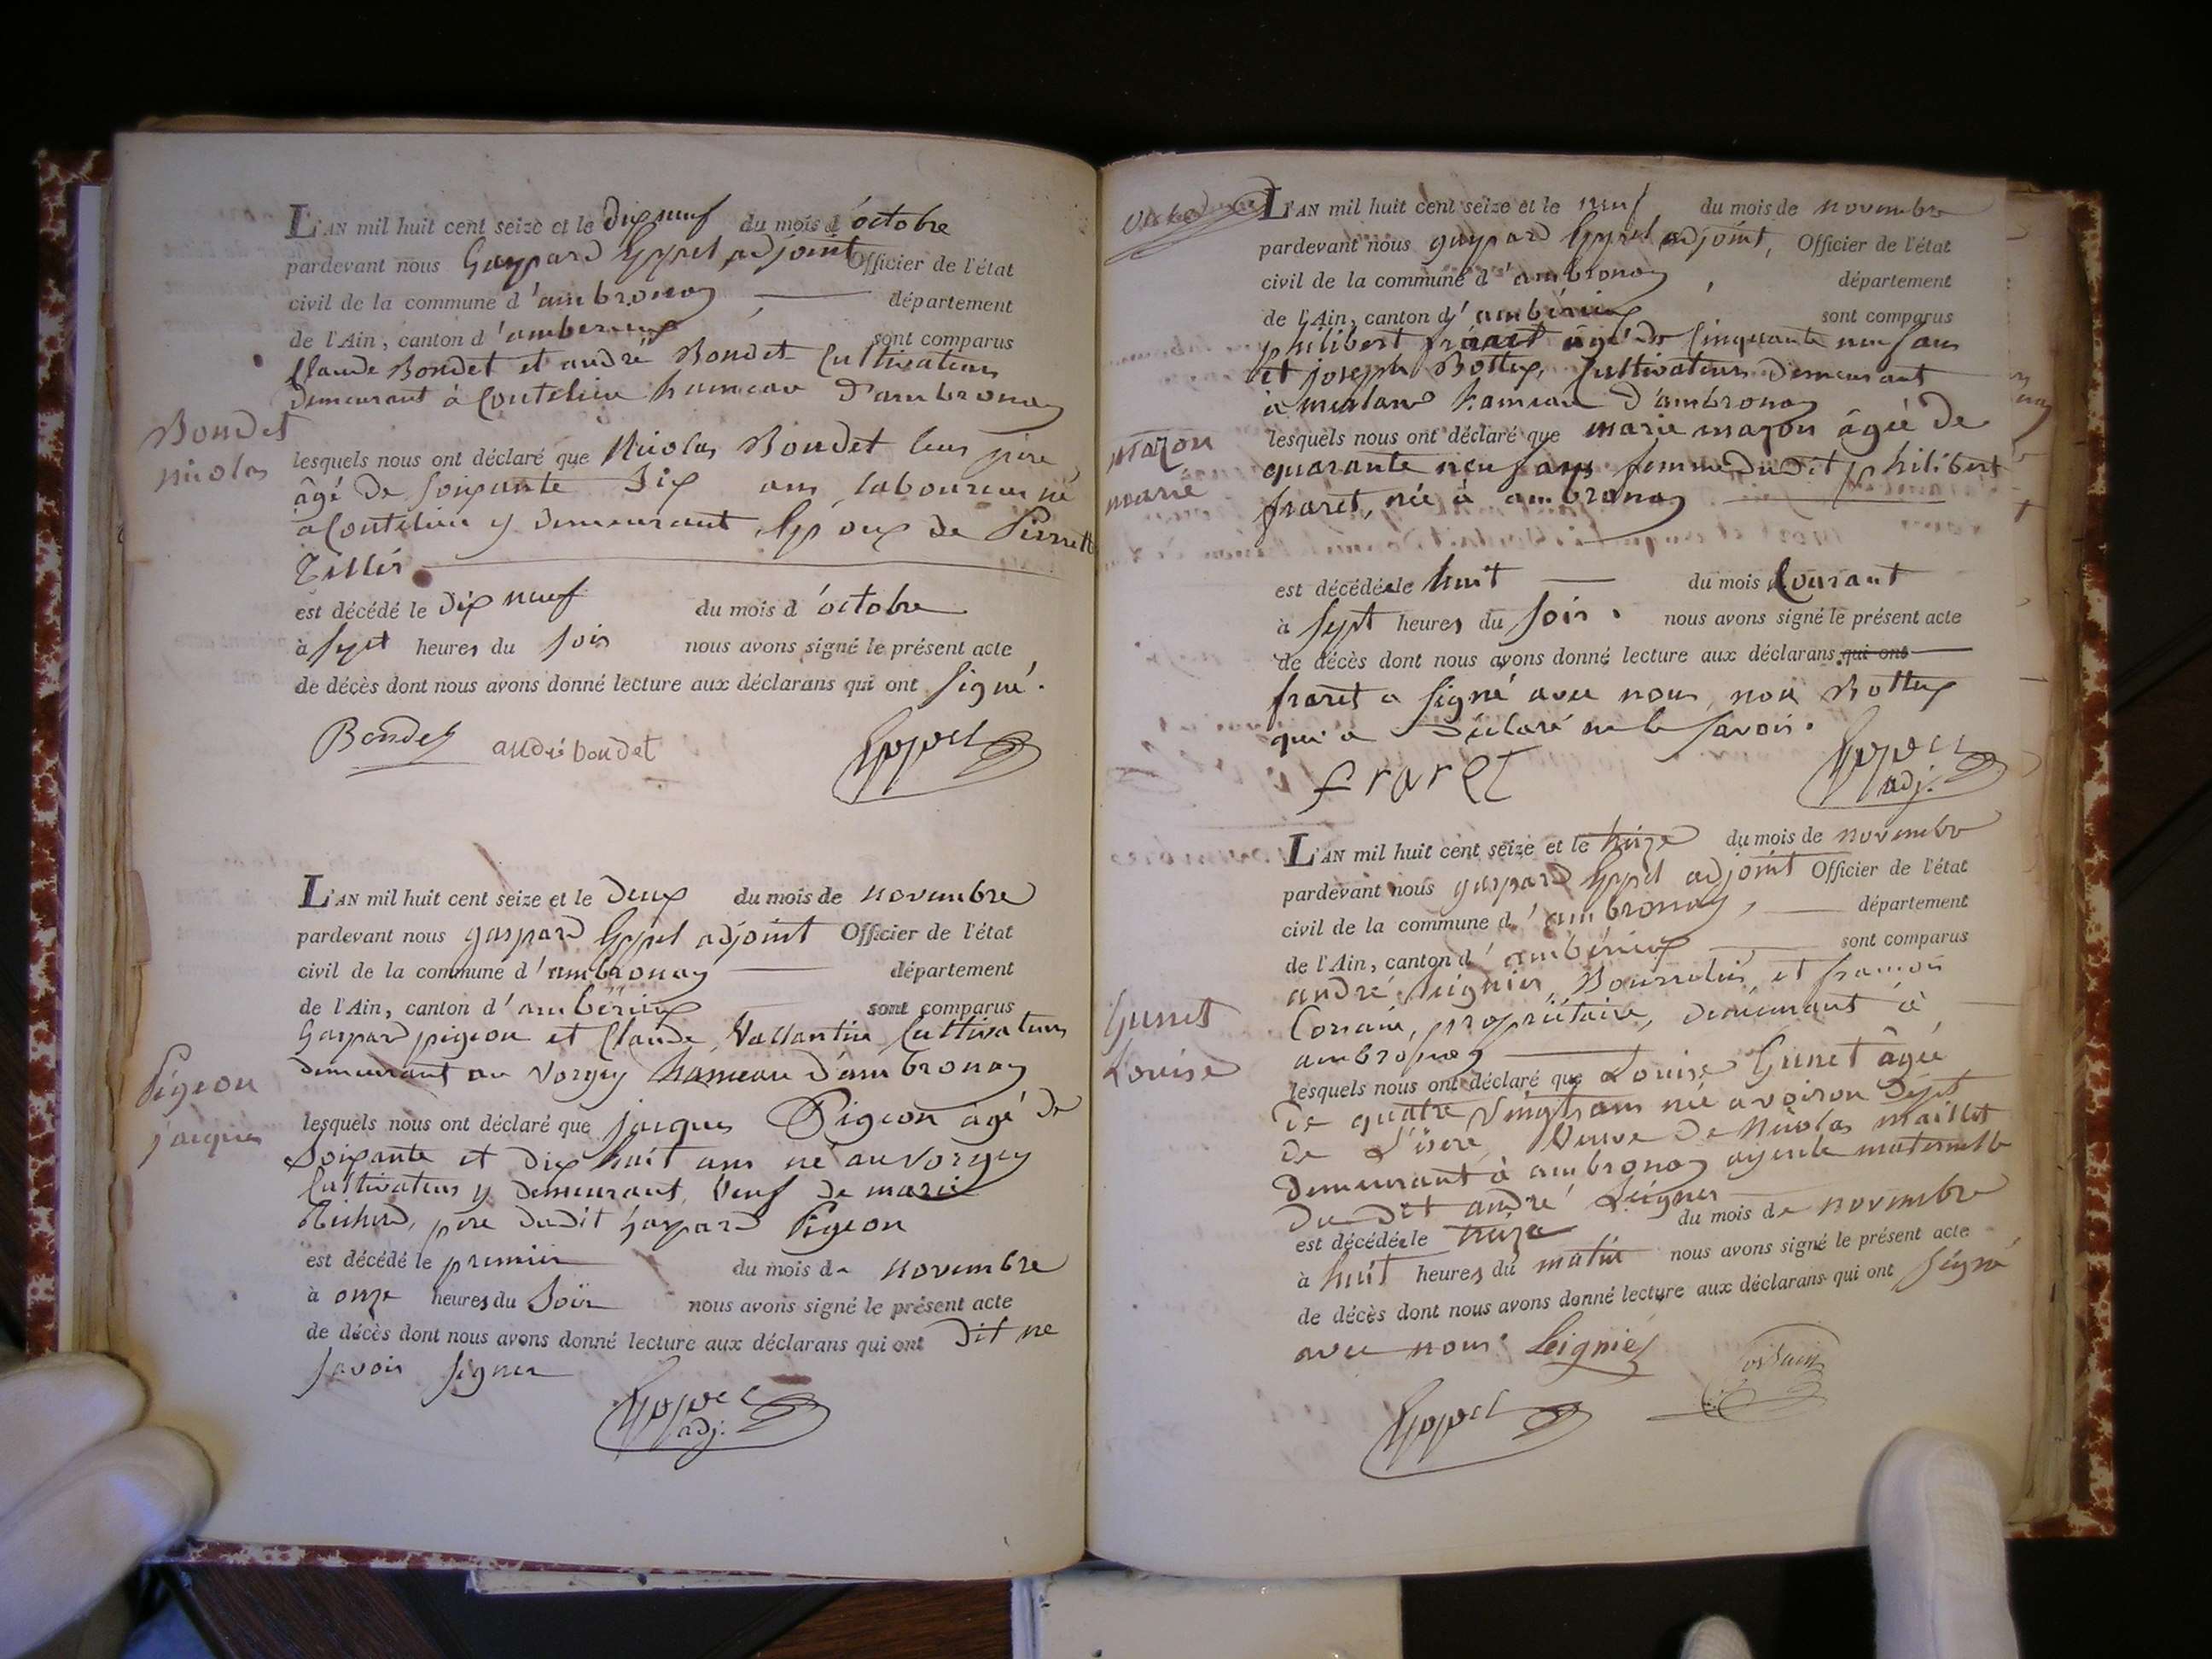 L'AN mil huit cent seize et le dix neuf du mois d'octobre
pardevant nous Gaspard Eppel adjoint Officier de l'état
civil de la commune d'ambronay département
de l'Ain, canton d'amberieux sont comparus
Claude Bondet et andré Bondet Cultivateurs
demeurant à Coutelieu hameau d'ambronay
Bondet
nicolas
lesquels nous ont déclaré que Nicolas Bondet leur père
âgé de soixante dix ans laboureur né
à Coutelieu y demeurant Epoux de Pierrette
Tillier
est décédé le dix neuf du mois d'octobre
à sept heures du soir nous avons signé le présent acte
de décès dont nous avons donné lecture aux déclarans qui ont signé.
Bondet andré bondet Eppel
L'AN mil huit cent seize et le deux du mois de novembre
pardevant nous gaspard Eppel adjoint Officier de l'état
civil de la commune d'ambronay département
de l'Ain, canton d'ambérieux sont comparus
Gaspard pigeon et Claude Vallantin Cultivateurs
demeurant au Vorgey hameau d'ambronay
Pigeon
jacques
lesquels nous ont déclaré que jacques Pigeon âgé de
soixante et dix huit ans né au Vorgey
Cultivateur y demeurant, Veuf de marie
père dudit Gaspard Pigeon
est décédé le premier du mois de novembre
à onze heures du Soir nous avons signé le présent acte
de décès dont nous avons donné lecture aux déclarans qui ont dit ne
savoir signer
Eppel
adj.
L'AN mil huit cent seize et le neuf du mois de novembre
pardevant nous gaspard Eppel adjoint, Officier de l'état
civil de la commune d'ambronay, département
de l'Ain, canton d'ambérieux sont comparus
philibert fraret âgé de Cinquante neuf ans
et joseph Bottex, Cultivateurs demeurant
à merland hameau d'ambronay
mazon
marie
lesquels nous ont déclaré que marie mazon âgée de
quarante neuf ans femme dudit philibert
fraret, née à ambronay
est décédée le huit du mois Courant
à sept heures du soir. nous avons signé le présent acte
de décès dont nous avons donné lecture aux déclarans qui ont
fraret a signé avec nous, non Bottex
qui a déclaré ne le savoir.
fraret Eppel
adj.
L'AN mil huit cent seize et le treize du mois de novembre
pardevant nous gaspard Eppel adjoint Officier de l'état
civil de la commune d'ambronay, département
de l'Ain, canton d'ambérieux sont comparus
andré Leignier, Bourrelier, et francois
propriétaire, demeurant à
ambronay
Gunet
Louise
lesquels nous ont déclaré que Louise Gunet âgée
de quatre Vingt ans née a voiron Dept
de L'isere, Veuve de Nicolas maillet
demeurant à ambronay ayeule maternelle
du dit andré Leignier
est décédée le treize du mois de novembre
à huit heures du matin nous avons signé le présent acte
de décès dont nous avons donné lecture aux déclarans qui ont signé
avec nous. Leignier
Eppel